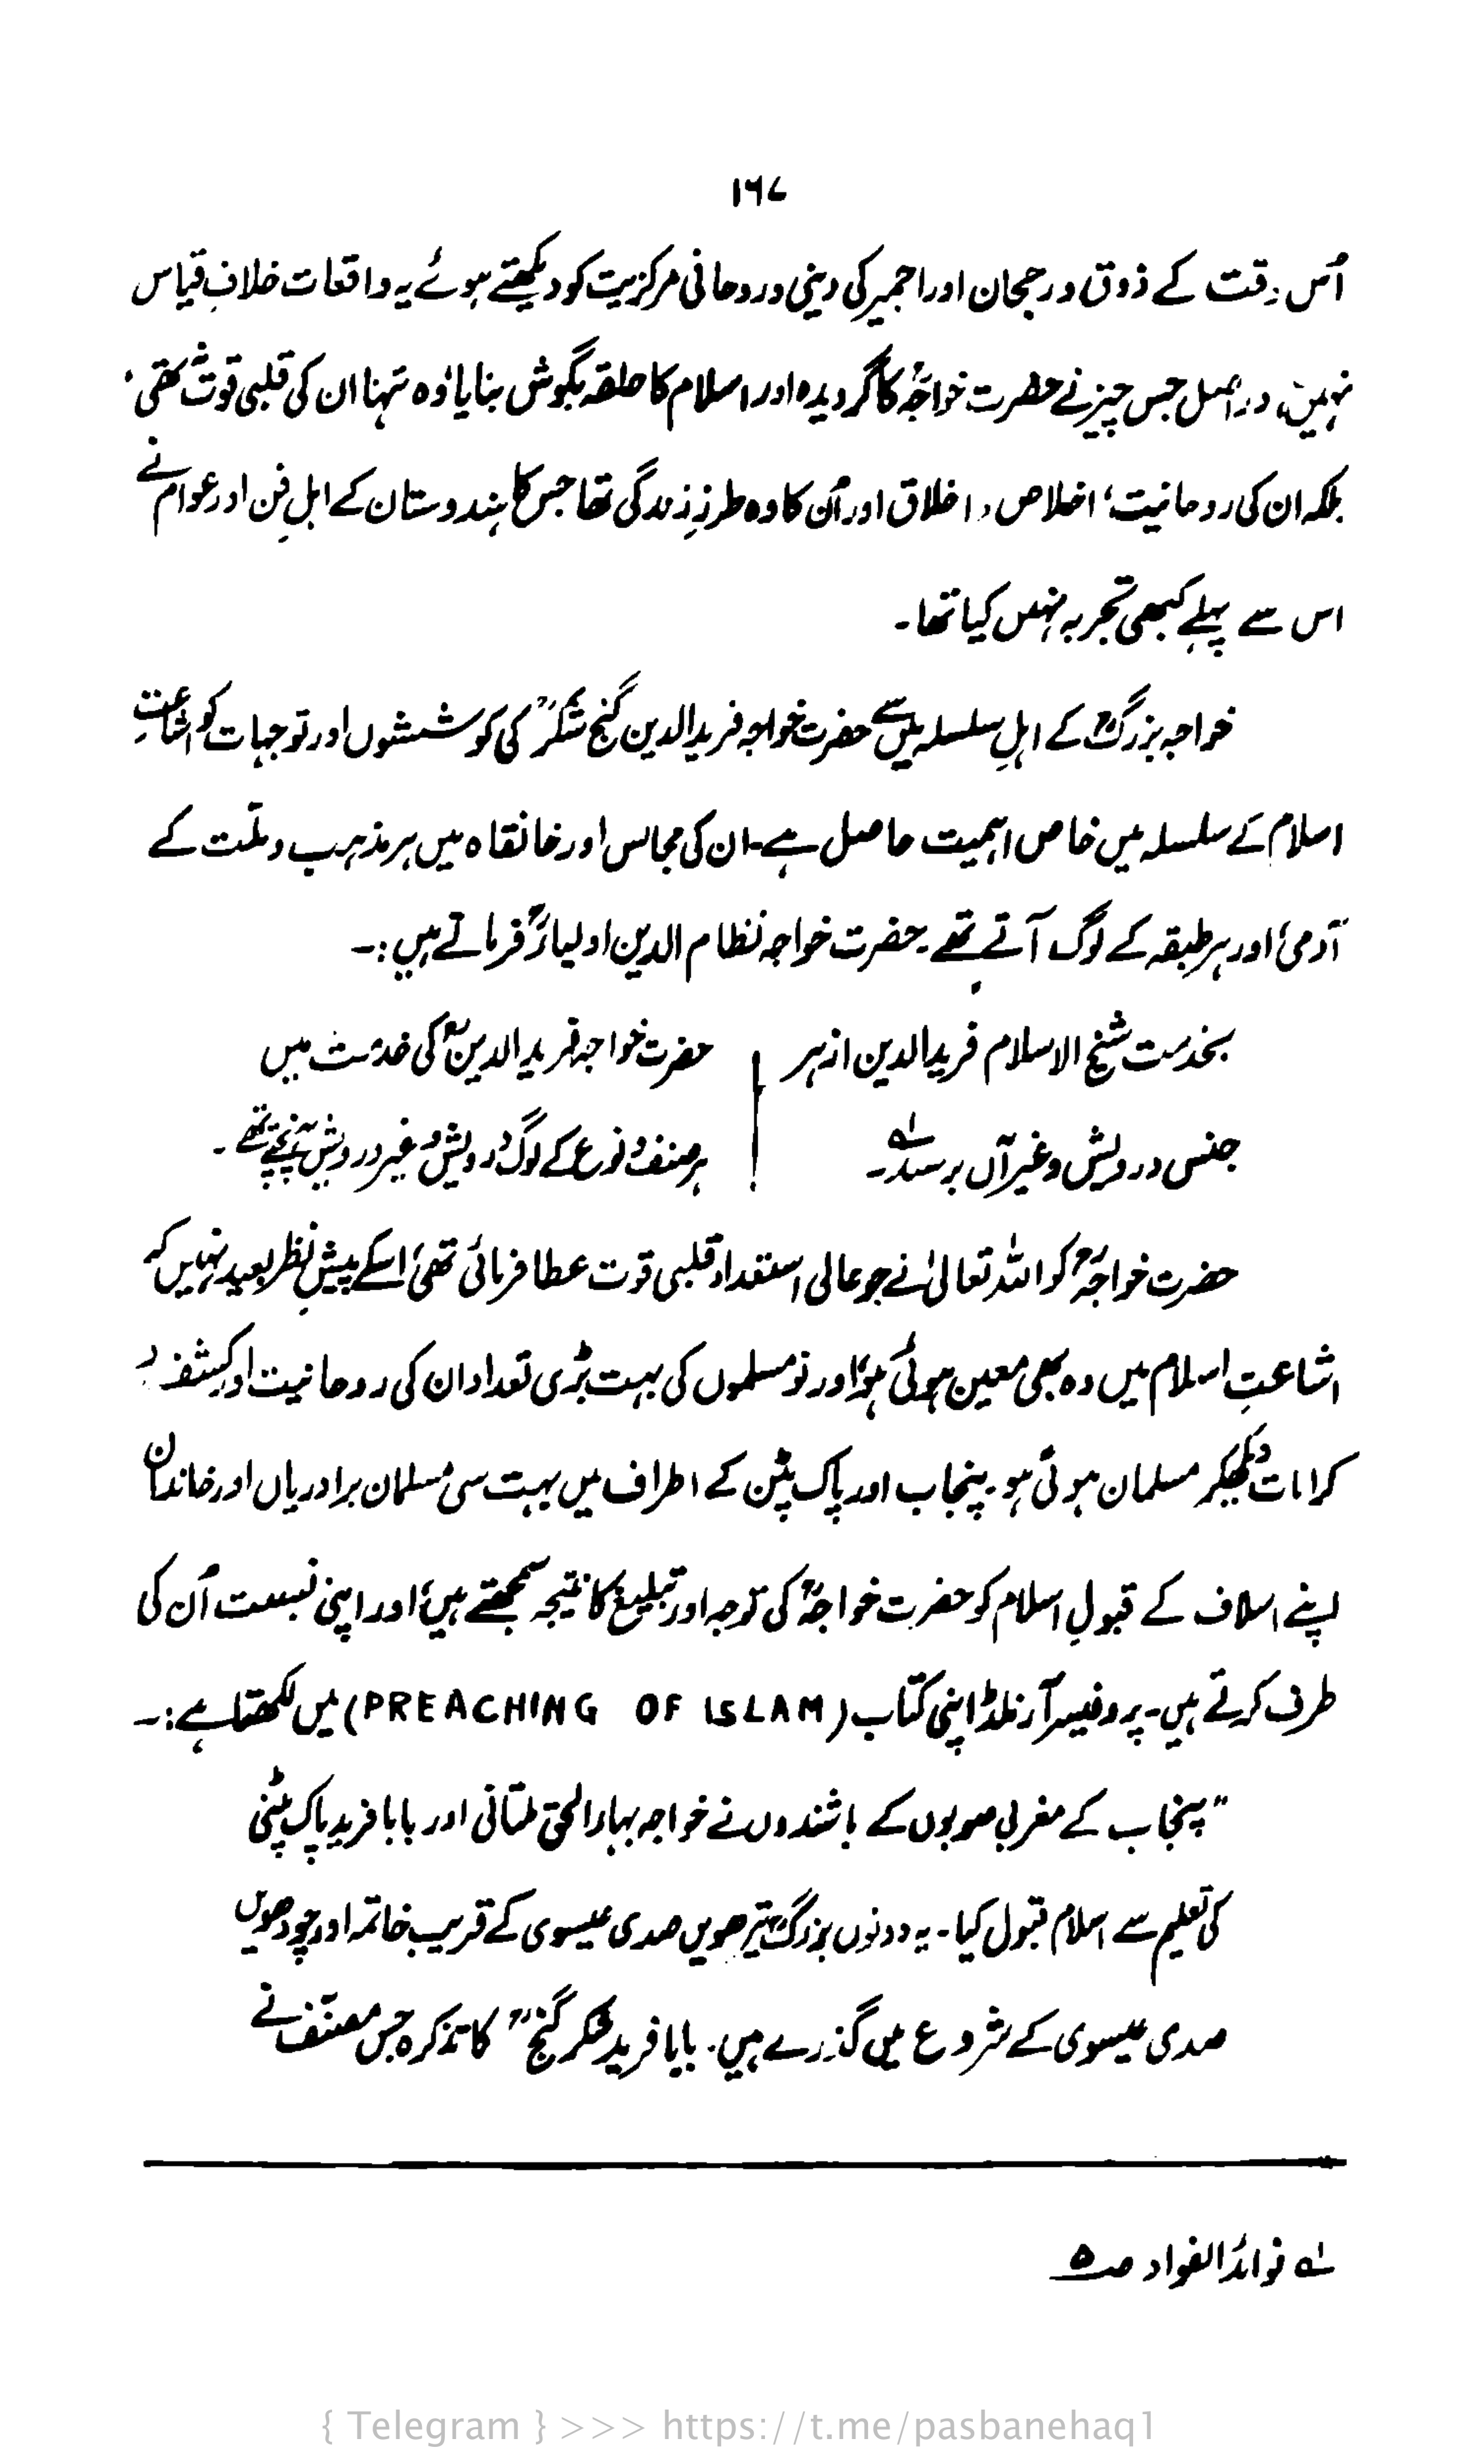 ۱۶۷
اُس وقت کے ذوق و رجحان اور اجمیر کی دینی و روحانی مرکزیت کو دیکھتے ہوئے یہ واقعات خلافِ قیاس
نہیں، در اصل جس چیز نے حضرت خواجہؒ کا گرویدہ اور اسلام کا حلقہ بگوش بنایا، وہ تنہا ان کی قلبی قوت نہ تھی،
بلکہ ان کی روحانیت، اخلاص، اخلاق اور اُن کا وہ طرزِ زندگی تھا جس کا ہندوستان کے اہلِ فن اور عوام نے
اس سے پہلے کبھی تجربہ نہیں کیا تھا۔
خواجہ بزرگؒ کے اہلِ سلسلہ میں سے حضرت خواجہ فرید الدین گنج شکرؒ کی کوششوں اور توجہات کو اشاعتِ
اسلام کے سلسلہ میں خاص اہمیت حاصل ہے۔ ان کی مجالس اور خانقاہ میں ہر مذہب و ملّت کے
آدمی، اور ہر طبقہ کے لوگ آتے تھے۔ حضرت خواجہ نظام الدین اولیاءؒ فرماتے ہیں:۔
بخدمت شیخ الاسلام فرید الدین از ہر
جنس درویش و غیر آں برسید۔ ۱؎
حضرت خواجہ فرید الدینؒ کی خدمت میں
ہر صنف و نوع کے لوگ درویش و غیر درویش پہنچتے تھے۔
حضرت خواجہؒ کو اللہ تعالیٰ نے جو عالی استعداد و قلبی قوت عطا فرمائی تھی، اسکے پیشِ نظر بعید نہیں کہ
اشاعتِ اسلام میں وہ بھی معین ہوئی ہو، اور نو مسلموں کی بہت بڑی تعداد ان کی روحانیت اور کشف و
کرامات دیکھکر مسلمان ہوئی ہو۔ پنجاب اور پاک پٹن کے اطراف میں بہت سی مسلمان برادریاں اور خاندان
اپنے اسلاف کے قبولِ اسلام کو حضرت خواجہؒ کی توجہ اور تبلیغ کا نتیجہ سمجھتے ہیں، اور اپنی نسبت اُن کی
طرف کرتے ہیں۔ پروفیسر آرنلڈ اپنی کتاب (PREACHING OF ISLAM) میں لکھتا ہے:۔
“پنجاب کے مغربی صوبوں کے باشندوں نے خواجہ بہاء الحق ملتانی اور بابا فرید پاک پٹنی
کی تعلیم سے اسلام قبول کیا۔ یہ دونوں بزرگ تیرھویں صدی عیسوی کے قریب خاتمہ اور چودھویں
صدی عیسوی کے شروع میں گذرے ہیں۔ بابا فرید شکر گنجؒ کا تذکرہ جس مصنّف نے
۱؎ فوائد الفواد صـ۵
{ Telegram } >>> https://t.me/pasbanehaq1